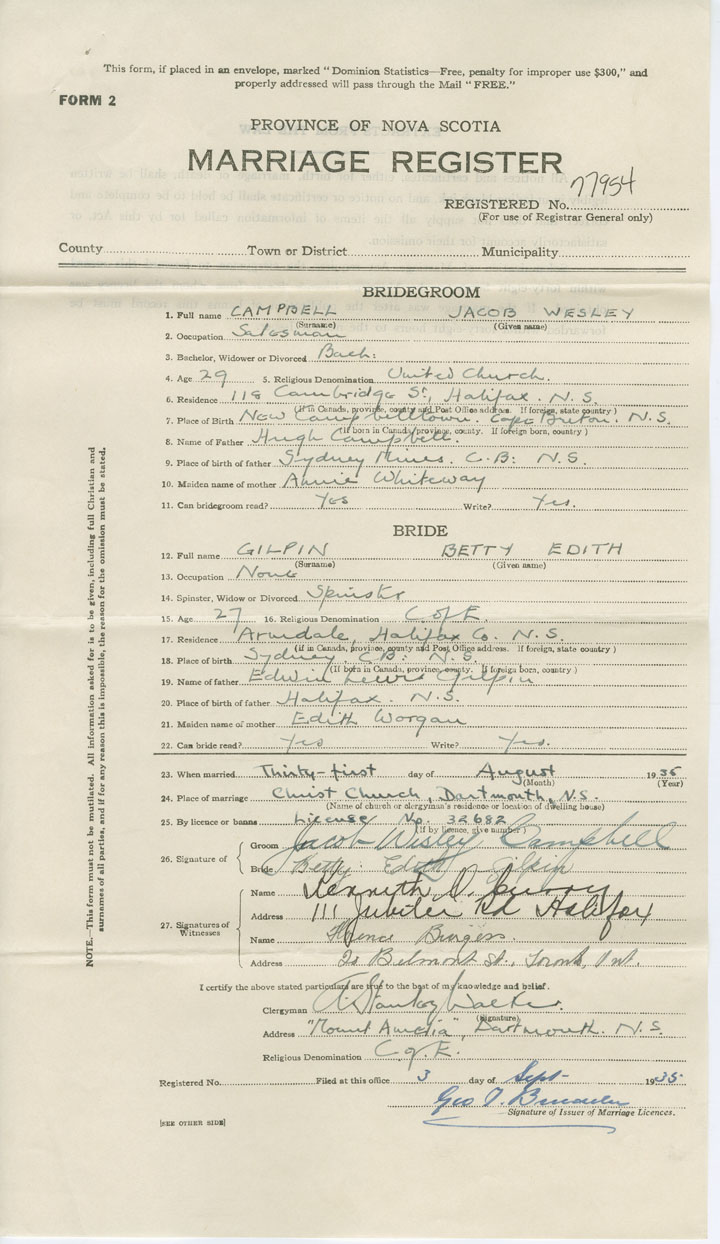 This form, if placed in an envelope, marked "Dominion Statistics—Free, penalty for improper use $300," and
properly addressed will pass through the Mail "FREE."
FORM 2
PROVINCE OF NOVA SCOTIA
MARRIAGE REGISTER
REGISTERED No. 77954
(For use of Registrar General only)
County Town or District Municipality
BRIDEGROOM
1. Full name CAMPBELL JACOB WESLEY
(Surname) (Given name)
2. Occupation Salesman
3. Bachelor, Widower or Divorced Bach:
4. Age 29 5. Religious Denomination United Church.
6. Residence 118 Cambridge St, Halifax. N.S.
(If in Canada, province, county and Post Office address. If foreign, state country)
7. Place of Birth New Campbelltown. Cape Breton. N.S.
(If born in Canada, province, county. If foreign born, country)
8. Name of Father Hugh Campbell.
9. Place of birth of father Sydney Mines. C.B: N.S.
10. Maiden name of mother Annie Whiteway
11. Can bridegroom read? Yes Write? Yes.
BRIDE
12. Full name GILPIN BETTY EDITH
(Surname) (Given name)
13. Occupation None
14. Spinster, Widow or Divorced Spinster
15. Age 27 16. Religious Denomination C. of E.
17. Residence Armdale, Halifax Co. N.S.
(If in Canada, province, county and Post Office address. If foreign, state country)
18. Place of birth Sydney. C.B: N.S.
(If born in Canada, province, county. If foreign born, country)
19. Name of father Edwin Lewis Gilpin
20. Place of birth of father Halifax. N.S.
21. Maiden name of mother Edith Worgan
22. Can bride read? Yes Write? Yes.
23. When married Thirty-first day of August 1935
(Month) (Year)
24. Place of marriage Christ Church, Dartmouth, N.S.
(Name of church or clergyman's residence or location of dwelling house)
25. By licence or banns License No. 32682
(If by licence, give number)
26. Signature of Groom Jacob Wesley Campbell
Bride Betty Edith Gilpin
27. Signatures of Witnesses
Name Kenneth
Address 111 Jubilee Rd Halifax
Name Burgess.
Address Belmont St., Toronto, Ont.
I certify the above stated particulars are true to the best of my knowledge and belief.
Clergyman A. Stanley Walker.
(Signature)
Address "Mount Amelia", Dartmouth. N.S.
Religious Denomination C. of E.
Registered No. Filed at this office 3 day of Sept- 1935.
Geo
Signature of Issuer of Marriage Licences.
[SEE OTHER SIDE]
NOTE.—This form must not be mutilated. All information asked for is to be given, including full Christian and
surnames of all parties, and if for any reason this is impossible, the reason for the omission must be stated.